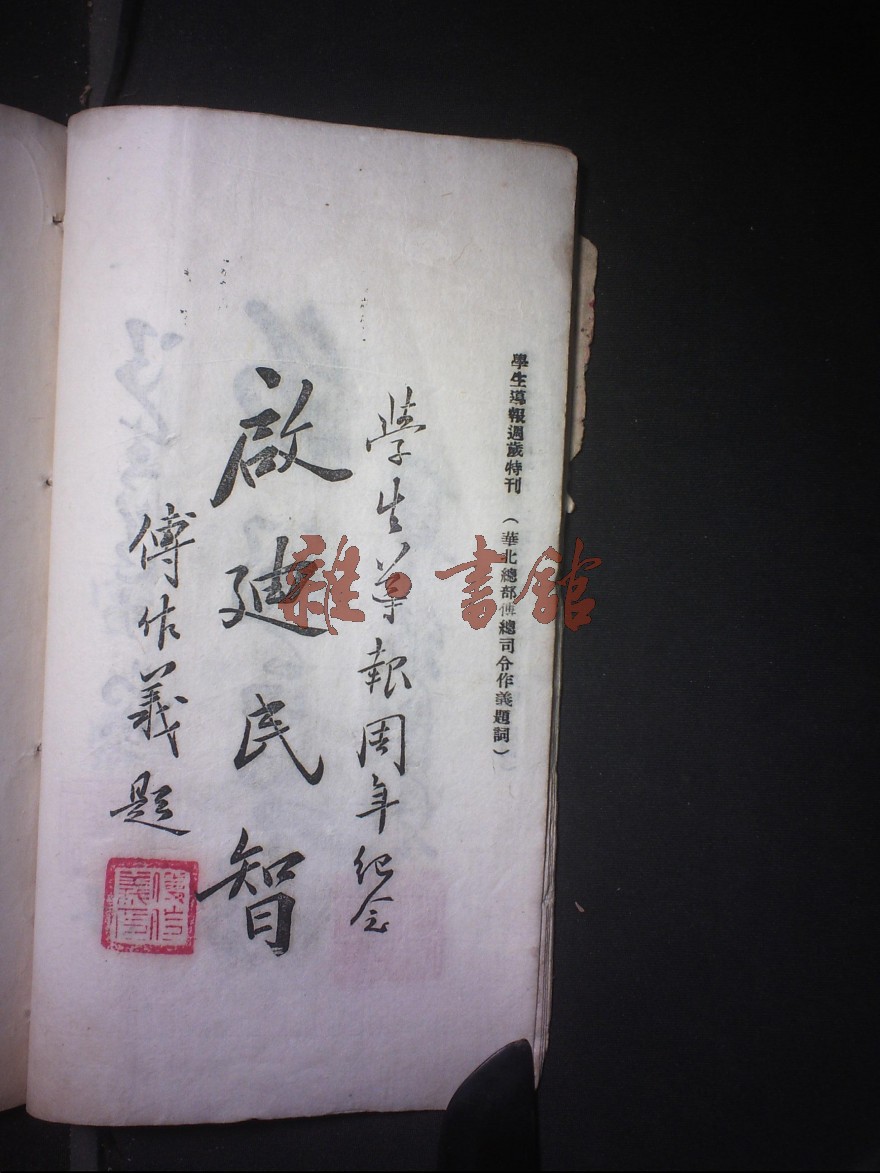 學生導報週歲特刊
（華北總部傅總司令作義題詞）
學生导報周年纪念
啟迪民智
傅作義題
傅作義印
雜·書館